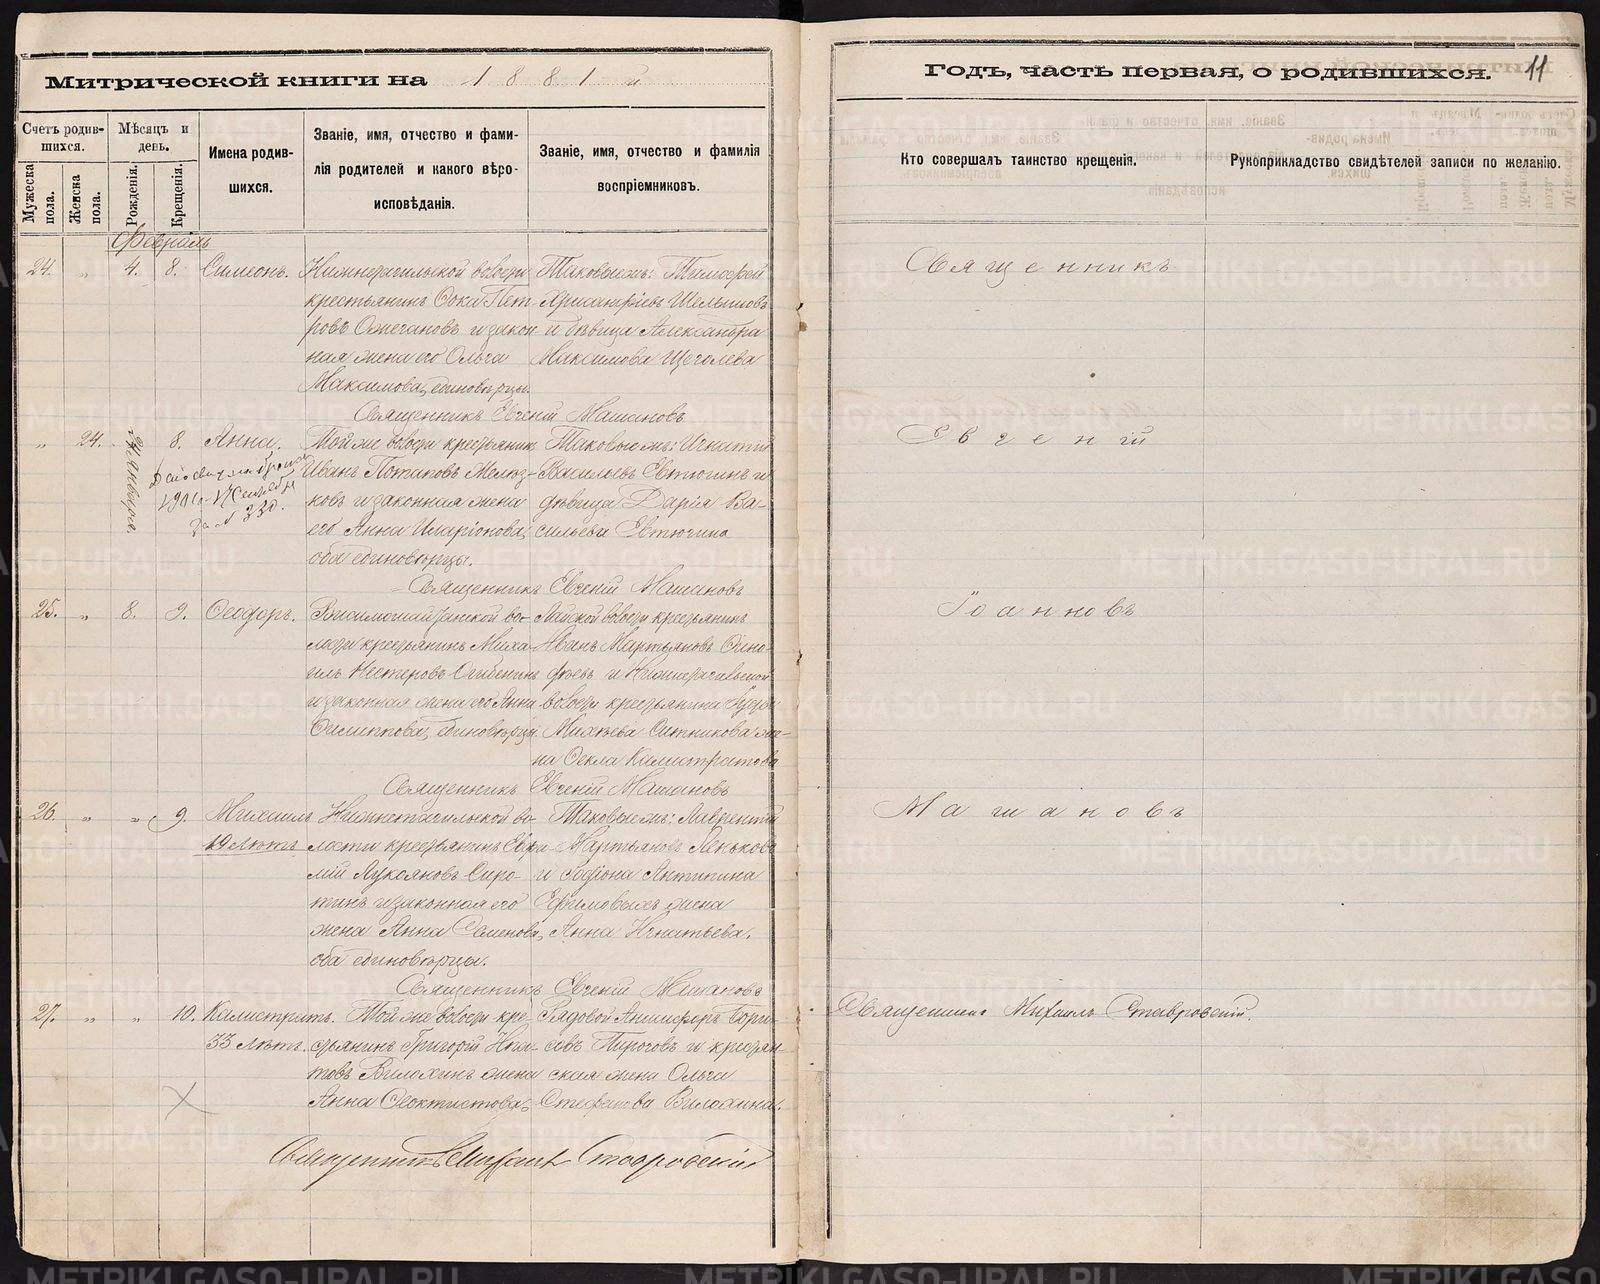 Митрической книги на 1881 й
Годъ, часть первая, о родившихся. 11
Счетъ родившихся.
Мужеска пола.
Женска пола.
Мѣсяцъ и день.
Рожденія.
Крещенія.
Имена родившихся.
Званіе, имя, отчество и фамилія родителей и какого вѣроисповѣданія.
Званіе, имя, отчество и фамилія воспріемниковъ.
Кто совершалъ таинство крещенія.
Рукоприкладство свидѣтелей записи по желанію.
Февраль
24. " 4. 8. Симеонъ.
Нижнетагильской волости
крестьянинъ Ѳока Пет-
ровъ Ожегановъ и закон-
ная жена его Ольга
Максимова, единовѣрцы.
Таковыежъ: Тимофей
Хрисанфіевъ Шелышовъ
и дѣвица Александра
Максимова Щеголева
Священникъ Евгеній Машановъ
" 24. Января. 8. Анна.
17 Сентября
за № 330.
Тойже волости крестьянинъ
Иванъ Потаповъ Желѣз-
ковъ и законная жена
его Анна Иларіонова,
оба единовѣрцы.
Таковыежъ: Игнатій
Васильевъ Евтюгинъ и
дѣвица Дарія Ва-
сильева Евтюгина
Священникъ Евгеній Машановъ
25. " 8. 9. Ѳеодоръ.
Висимошайтанской во-
лости крестьянинъ Миха-
илъ Нестеровъ Огибенинъ
и законная жена его Анна
Филиппова, единовѣрцы
Лайской волости крестьянинъ
Иванъ Мартьяновъ Ѳино-
феевъ и Нижнетагильской
волости крестьянина
Михѣева Ситникова же-
на Ѳекла Калистратова
Священникъ Евгеній Машановъ
26. " " 9. Михаилъ
19 лѣтъ
Нижнетагильской во-
лости крестьянинъ Евфи-
мій Лукояновъ Сиро-
тинъ и законная его
жена Анна Семенова,
оба единовѣрцы.
Таковыежъ: Лаврентій
Мартьяновъ Пеньковъ
и Софрона Антипина
Ефимовыхъ жена
Анна Игнатьева.
Священникъ Евгеній Машановъ
27. " " 10. Калистратъ.
33 лѣтъ.
Той же волости кре-
стьянинъ Григорій Ники-
товъ Вилохинъ жена
Анна Ѳеоктистова,
Рядовой Анисифоръ Борис-
овъ Пироговъ и крестьян-
ская жена Ольга
Стефанова Вилохина.
Священникъ Михаилъ Ставровскій
Священникъ
Евгеній
Іоанновъ
Машановъ
Священникъ Михаилъ Ставровскій.
METRIKI.GASO-URAL.RU